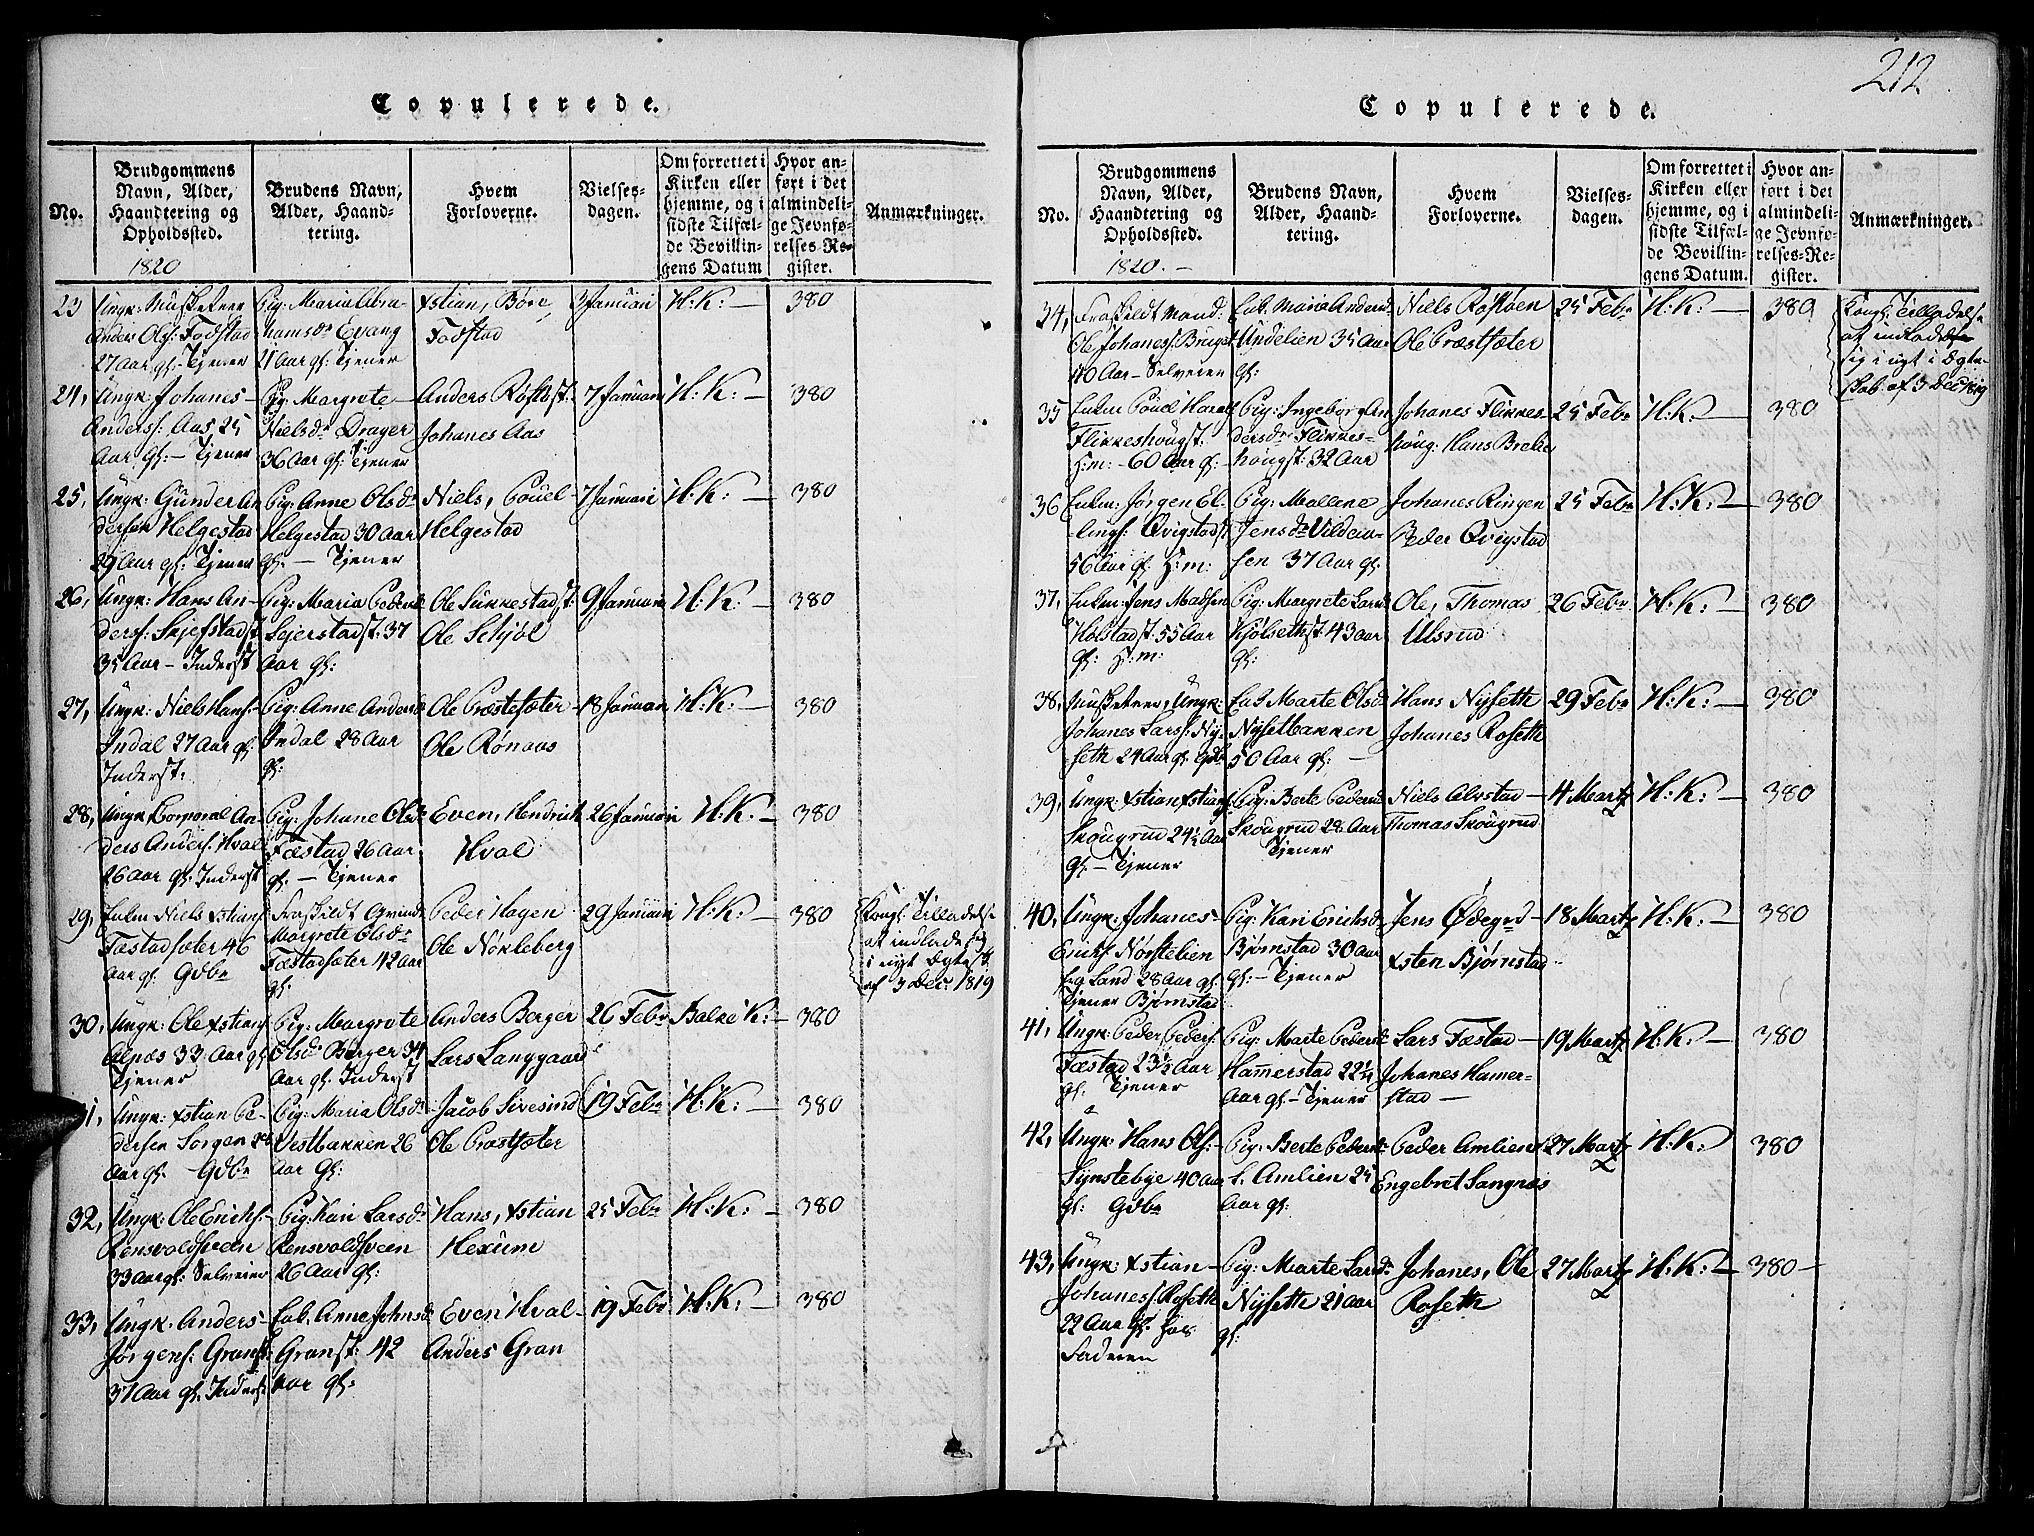 212.
Copulerede.
No.
Brudgommens
Navn, Alder,
Haandtering og
Opholdssted.
1820
Brudens Navn,
Alder, Haand-
tering.
Hvem
Forloverne.
Vielses-
dagen.
Om forrettet i
Kirken eller
hjemme, og i
sidste Tilfæl-
de Bevillin-
gens Datum
Hvor an-
ført i det
almindeli-
ge Jevnfø-
relses-Re-
gister.
Anmærkninger.
23
Ungk: Musketeer
Anders Ols: Fodstad
27 Aar gl: Tjener
Pig: Maria Abra
hamsdr Evang
21 Aar gl: Tjener
Xstian, Børe,
Fodstad
3 Januari
H: K: —
380
24,
Ungk: Johanes
Anders: Aas 25
Aar gl: — Tjener
Pig: Margrete
Nielsdr Drager
36 Aar gl: Tjener
Anders Røstøst:
Johanes Aas
7 Januari
H: K: —
380
25,
Ungk: Gunder An
dersen Helgestad
29 Aar gl: Tjener
Pig: Anne Olsdr
Helgestad 30 Aar
gl: — Tjener
Niels, Pouel
Helgestad
7 Januari
H: K: —
380
26,
Ungk: Hans An-
ders: Skjefstadst
35 Aar — Inderst
Pig: Maria Peders
Sejerstadst: 37
Aar gl:
Ole Sukkestadst:
Ole Schjøl
9 Januari
H: K: —
380
27,
Ungk: Niels Hans:
Indal 27 Aar gl:
Inderst:
Pig: Anne Andersd
Indal 28 Aar
gl:
Ole Præstesæter
Ole Rønaas
18 Januari
H: K: —
380
28,
Ungk: Corporal An-
ders Anders: Hval
26 Aar gl: Inderst
Pig: Johane Olsdr
Fæstad 26 Aar
gl: — Tjener
Even, Hendrich
Hval
26 Januari
H: K: —
380
29,
Enkm Niels Xstians
Fæstadsæter 46
Aar gl: Gdbr
Fraskildt Qvinde
Margrete Olsdr
Fæstadsæter 42 Aar
gl:
Peder Hagen
Ole Nøkleberg
29 Januari
H: K: —
380
Kongl: Tilladelse
at indlade sig
i nyt Ægtesk:
af 3 Dec: 1819
30,
Ungk: Ole Xstians
Alnæs 33 Aar gl
Tjener
Pig: Margrete
Olsdr Berger 34
Aar gl: Inderst
Anders Berger
Lars Langgaard
26 Febr
Balke K: —
380
31,
Ungk: Xstian Pe-
dersen Sorgen 28
Aar gl: Gdbr
Pig: Maria Olsdr
Vestbakken 26
Aar gl:
Jacob Sivesind
Ole Præstsæter
19 Febr
H: K: —
380
32,
Ungk: Ole Erichs:
Rensvoldsveen
33 Aar gl: Selveier
Pig: Kari Larsdr
Rensvoldsveen
26 Aar gl:
Hans, Xstian
Hexum
25 Febr
H: K: —
380
33,
Ungk: Anders
Jørgens: Granst:
31 Aar gl: Inderst
Enk: Anne Johnsd
Granst: 42
Aar gl:
Even Hval
Anders Gran
19 Febr
H: K: —
380
Copulerede.
No.
Brudgommens
Navn, Alder,
Haandtering og
Opholdssted.
1820. —
Brudens Navn,
Alder, Haand-
tering.
Hvem
Forloverne.
Vielses-
dagen.
Om forrettet i
Kirken eller
hjemme, og i
sidste Tilfæl-
de Bevillin-
gens Datum.
Hvor an-
ført i det
almindeli-
ge Jevnfø-
relses-Re-
gister.
Anmærkninger.
34,
Fraskildt Mand:
Ole Johanes: Bruget
40 Aar — Selveier
Enk: Maria Andersd
Undelien 35 Aar
gl:
Niels Røstøen
Ole Præstsæter
25 Febr
H: K: —
380
Kongl: Tilladelse
at indlade
sig i nyt i Ægte-
skab: af 3 Dec 1819
35
Enkm Pouel Harals
Flikkeshougst:
H:m: — 60 Aar gl: —
Pig: Ingeborg An
dersdr Flikkes-
hougst: 32 Aar
Johanes Flikkes
houg: Hans Brekke
25 Febr
H: K: —
380
36
Enkm: Jørgen El-
lings: Qvigstadst
56 Aar gl: H:m:
Pig: Mallene
Jensdr Vildeia-
sen 37 Aar gl:
Johanes Ringen
Peder Qvigstad
25 Febr
H: K: —
380
37,
Enkm: Jens Madsen
Holstadst: 55 Aar
gl: H:m:
Pig: Margrete Larsd
Kjølsethst: 43 Aar
gl:
Ole, Thomas
Ulsrud
26 Febr
H: K: —
380
38,
Musketeer, Ungk:
Johanes Lars: Ny-
seth 24 Aar gl: Gdb
Enk Marte Olsd
Nysetbakken
50 Aar gl: —
Hans Nyseth
Johanes Roseth
29 Febr
H: K: —
380
39,
Ungk: Xstian Xstians
Skougrud 24½ Aar
gl: — Tjener
Pig: Berte Pedersd
Skougrud 28 Aar
Tjener
Niels Alvstad —
Thomas Skougrud
4 Martz
H: K: —
380
40,
Ungk: Johanes
Erichs: Nørstelien
fra Land 28 Aar gl:
Tjener Bjørnstad
Pig: Kari Erichsd
Bjørnstad 30 Aar
gl: — Tjener
Jens Ødegrd
Xsten Bjørnstad
18 Martz
H: K: —
380
41,
Ungk: Peder Peders:
Fæstad 23½ Aar
gl: Tjener
Pig: Marte Pedersd
Hamerstad 22¼
Aar gl: — Tjener
Lars Fæstad —
Johanes Hamer-
stad —
19 Martz
H: K: —
380
42,
Ungk: Hans Ols:
Synstebye 40 Aar
gl: Gdbr
Pig: Berte Pedersdr
Amlien 25
Aar gl:
Peder Amlien
Engebret Sangnæs
27 Martz
H: K:
380
43,
Ungk: Xstian
Johanes: Roseth
22 Aar gl: hos
Faderen
Pig: Marte Larsdr
Nyseth 21 Aar
gl:
Johanes, Ole
Roseth
27 Martz
H: K: —
380 —